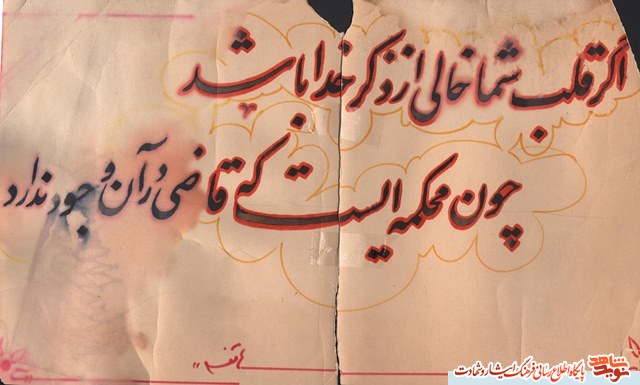 اگر قلب شما خالی از ذکر خدا باشد
چون محکمه ایست که قاضی در آن وجود ندارد
نوید شاهد
پایگاه اطلاع رسانی فرهنگ ایثار و شهادت